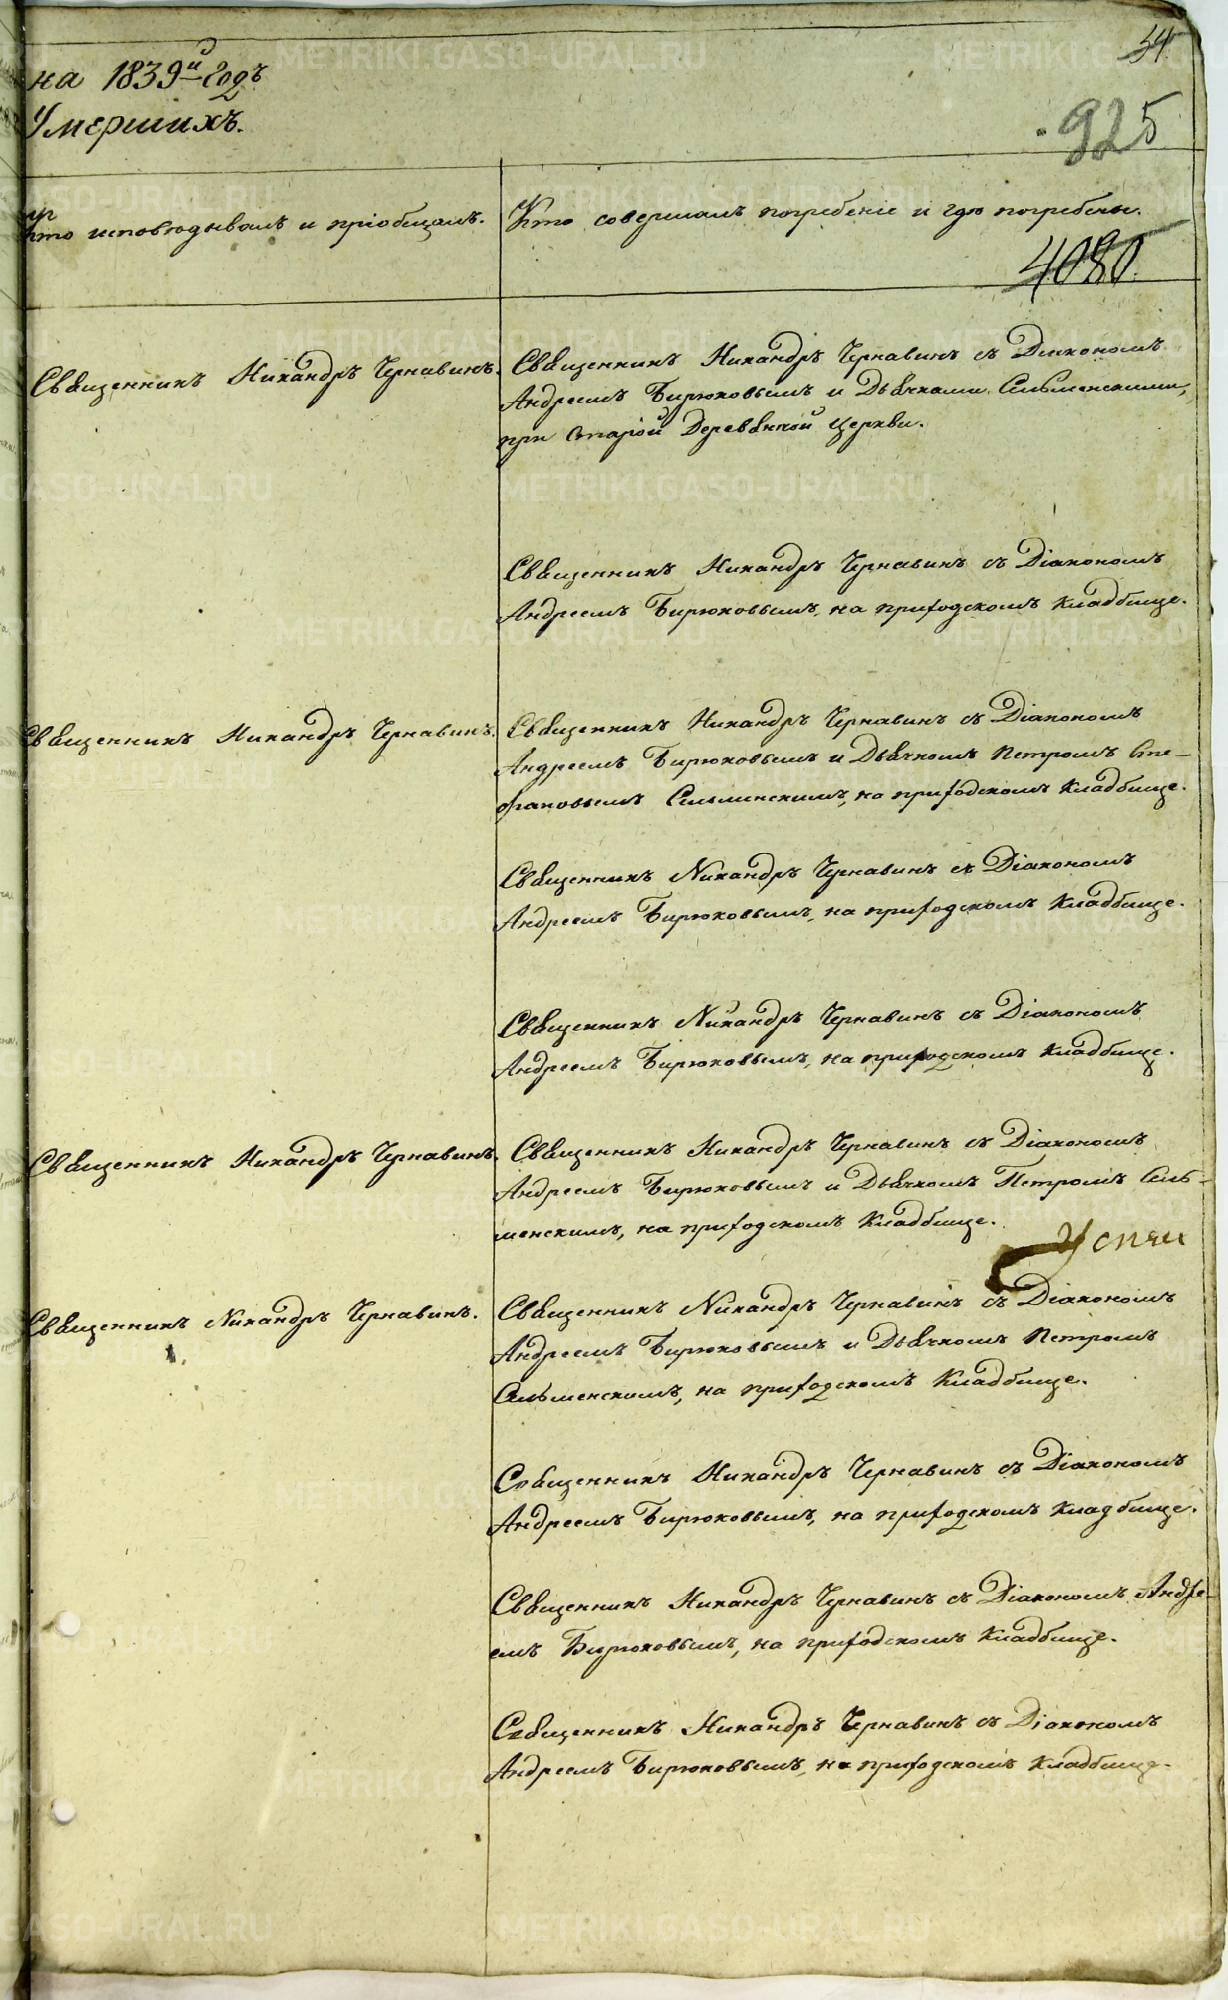 54.
на 1839й годъ
Умершихъ.
925
Кто исповѣдывалъ и пріобщалъ.
Кто совершалъ погребеніе и гдѣ погребены.
4080.
Священникъ Никандръ Чернавинъ.
Священникъ Никандръ Чернавинъ съ Діакономъ
Андреемъ Бирюковымъ и Дьячками Сельменскими,
при Старой Деревянной церкви.
Священникъ Никандръ Чернавинъ съ Діакономъ
Андреемъ Бирюковымъ, на приходскомъ Кладбище.
Священникъ Никандръ Чернавинъ.
Священникъ Никандръ Чернавинъ съ Діакономъ
Андреемъ Бирюковымъ и Дьячкомъ Петромъ Сте-
фановымъ Сельминскимъ, на приходскомъ Кладбище.
Священникъ Никандръ Чернавинъ съ Діакономъ
Андреемъ Бирюковымъ, на приходскомъ Кладбище.
Священникъ Никандръ Чернавинъ съ Діакономъ
Андреемъ Бирюковымъ, на приходскомъ Кладбище.
Священникъ Никандръ Чернавинъ.
Священникъ Никандръ Чернавинъ съ Діакономъ
Андреемъ Бирюковымъ и Дьячкомъ Петромъ Сель-
менскимъ, на приходскомъ Кладбище.
Священникъ Никандръ Чернавинъ.
Священникъ Никандръ Чернавинъ съ Діакономъ
Андреемъ Бирюковымъ и Дьячкомъ Петромъ
Сельменскимъ, на приходскомъ Кладбище.
Священникъ Никандръ Чернавинъ съ Діакономъ
Андреемъ Бирюковымъ, на приходскомъ Кладбище.
Священникъ Никандръ Чернавинъ съ Діакономъ Андре-
емъ Бирюковымъ, на приходскомъ Кладбище.
Священникъ Никандръ Чернавинъ съ Діакономъ
Андреемъ Бирюковымъ, на приходскомъ Кладбище.
METRIKI.GASO-URAL.RU